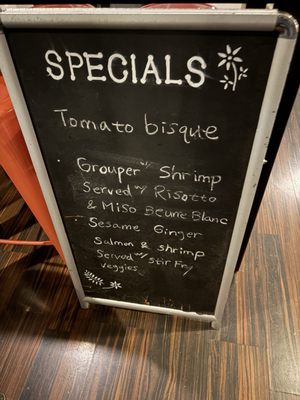 SPECIALS
Tomato bisque
Grouper w/ Shrimp
Served w/ Risotto
& Miso Beurre Blanc
Sesame Ginger
Salmon & shrimp
Served w/ Stir Fry
veggies